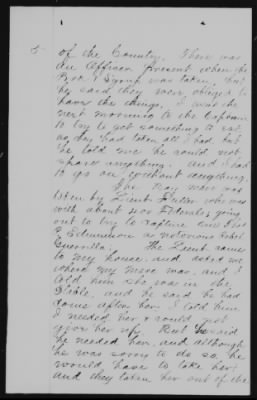 5
of the County. There was
an Officer present when the
Pork & Syrup was taken, but
he said they were obliged to
have the things. I went the
next morning to the Captain
to try to get something to eat,
as they had taken all I had, but
he told me he could not
spare anything. and I had
to go on without anything.
The Bay Mare was
taken by Lieut Fuller who was
with about 200 Federals, going
out to try to capture
a notorious Rebel
Guerrilla. The Lieut came
to my house and asked me
where my mare was, and I
told him she was in the
Stable, and he said he had
come after her. I told him
I needed her & could not
give her up. But he said
he needed her, and although
he was sorry to do so, he
would have to take her;
and they taken her out of the